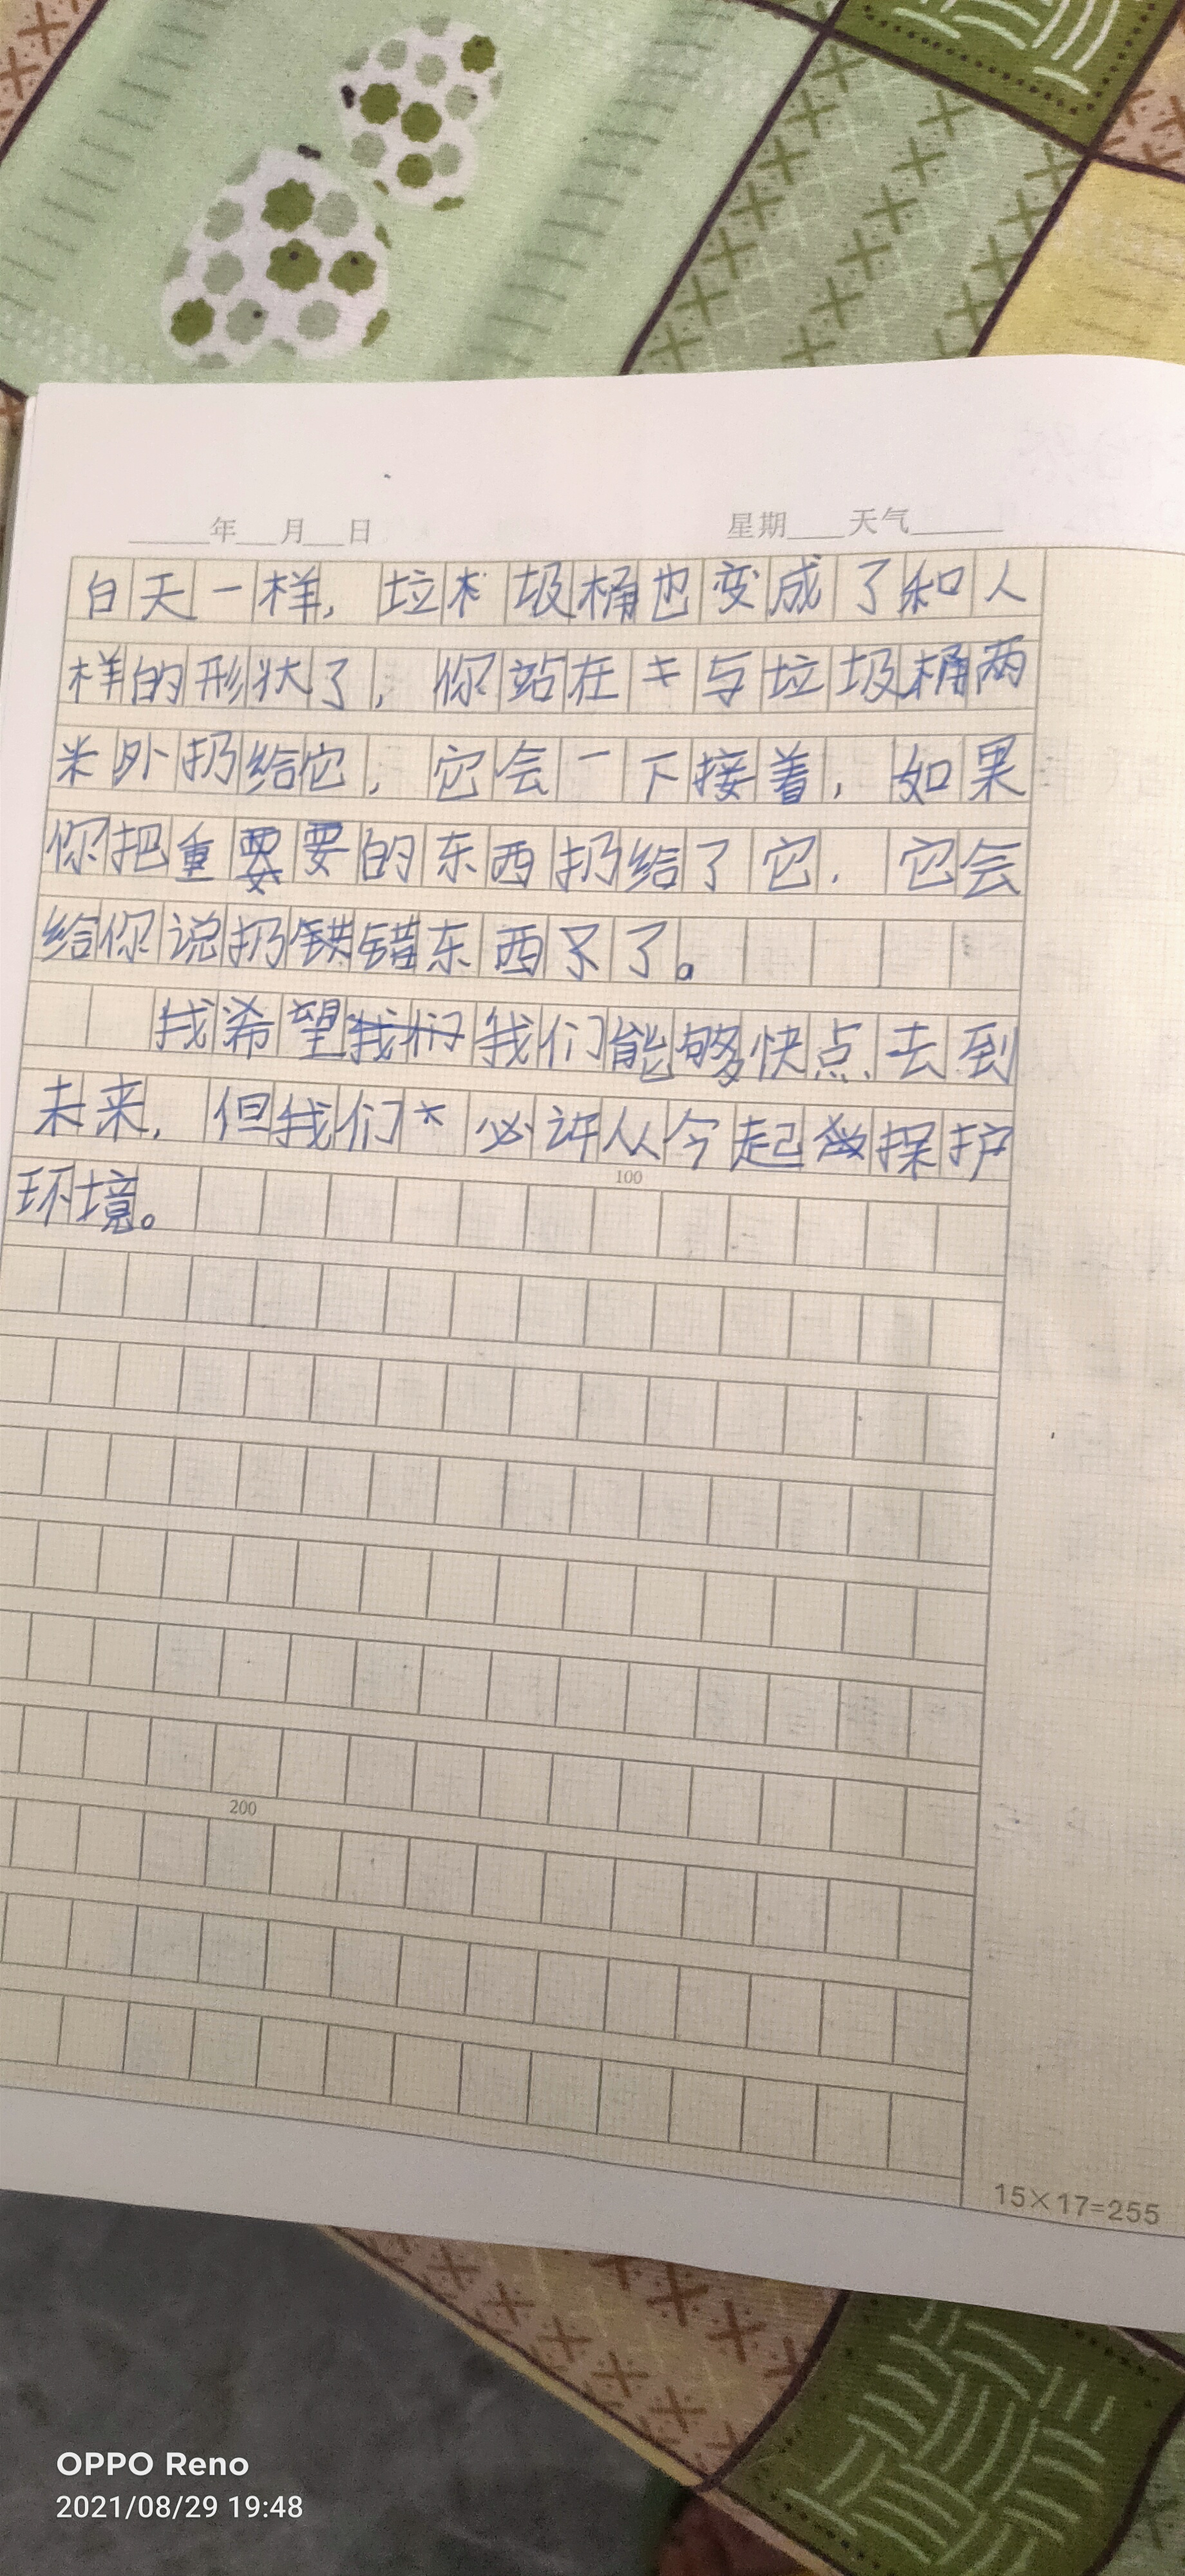 年 月 日 星期 天气
白天一样，垃圾桶也变成了和人
样的形状了，你站在与垃圾桶两
米外扔给它，它会一下接着，如果
你把重要的东西扔给了它，它会
给你说扔错错东西了。
我希望我们能够快点去到
未来，但我们必许从今起保护
100
环境。
200
15×17=255
OPPO Reno
2021/08/29 19:48